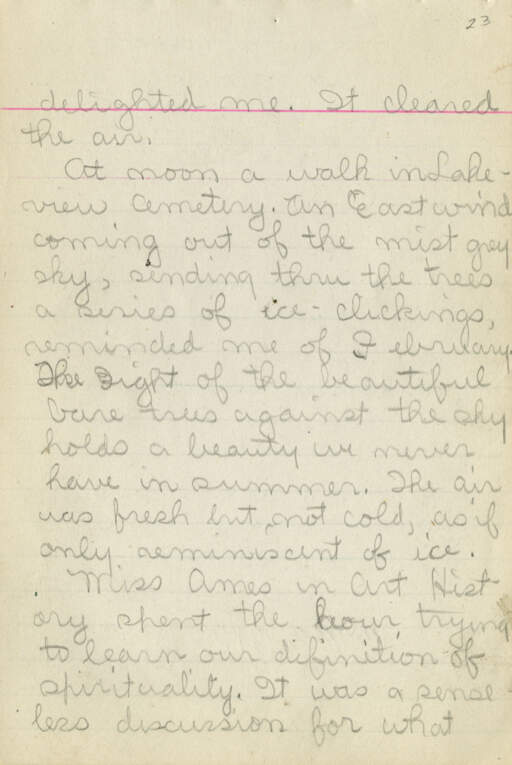 23
delighted me. It cleared
the air.
At noon a walk in Lake-
view Cemetery. An East wind
coming out of the mist grey
sky, sending thru the trees
a series of ice-clickings,
reminded me of February.
The sight of the beautiful
bare trees against the sky
holds a beauty we never
have in summer. The air
was fresh but, not cold, as if
only reminiscent of ice.
Miss Ames in Art Hist-
ory spent the hour trying
to learn our difinition of
spirituality. It was a sense-
less discussion for what